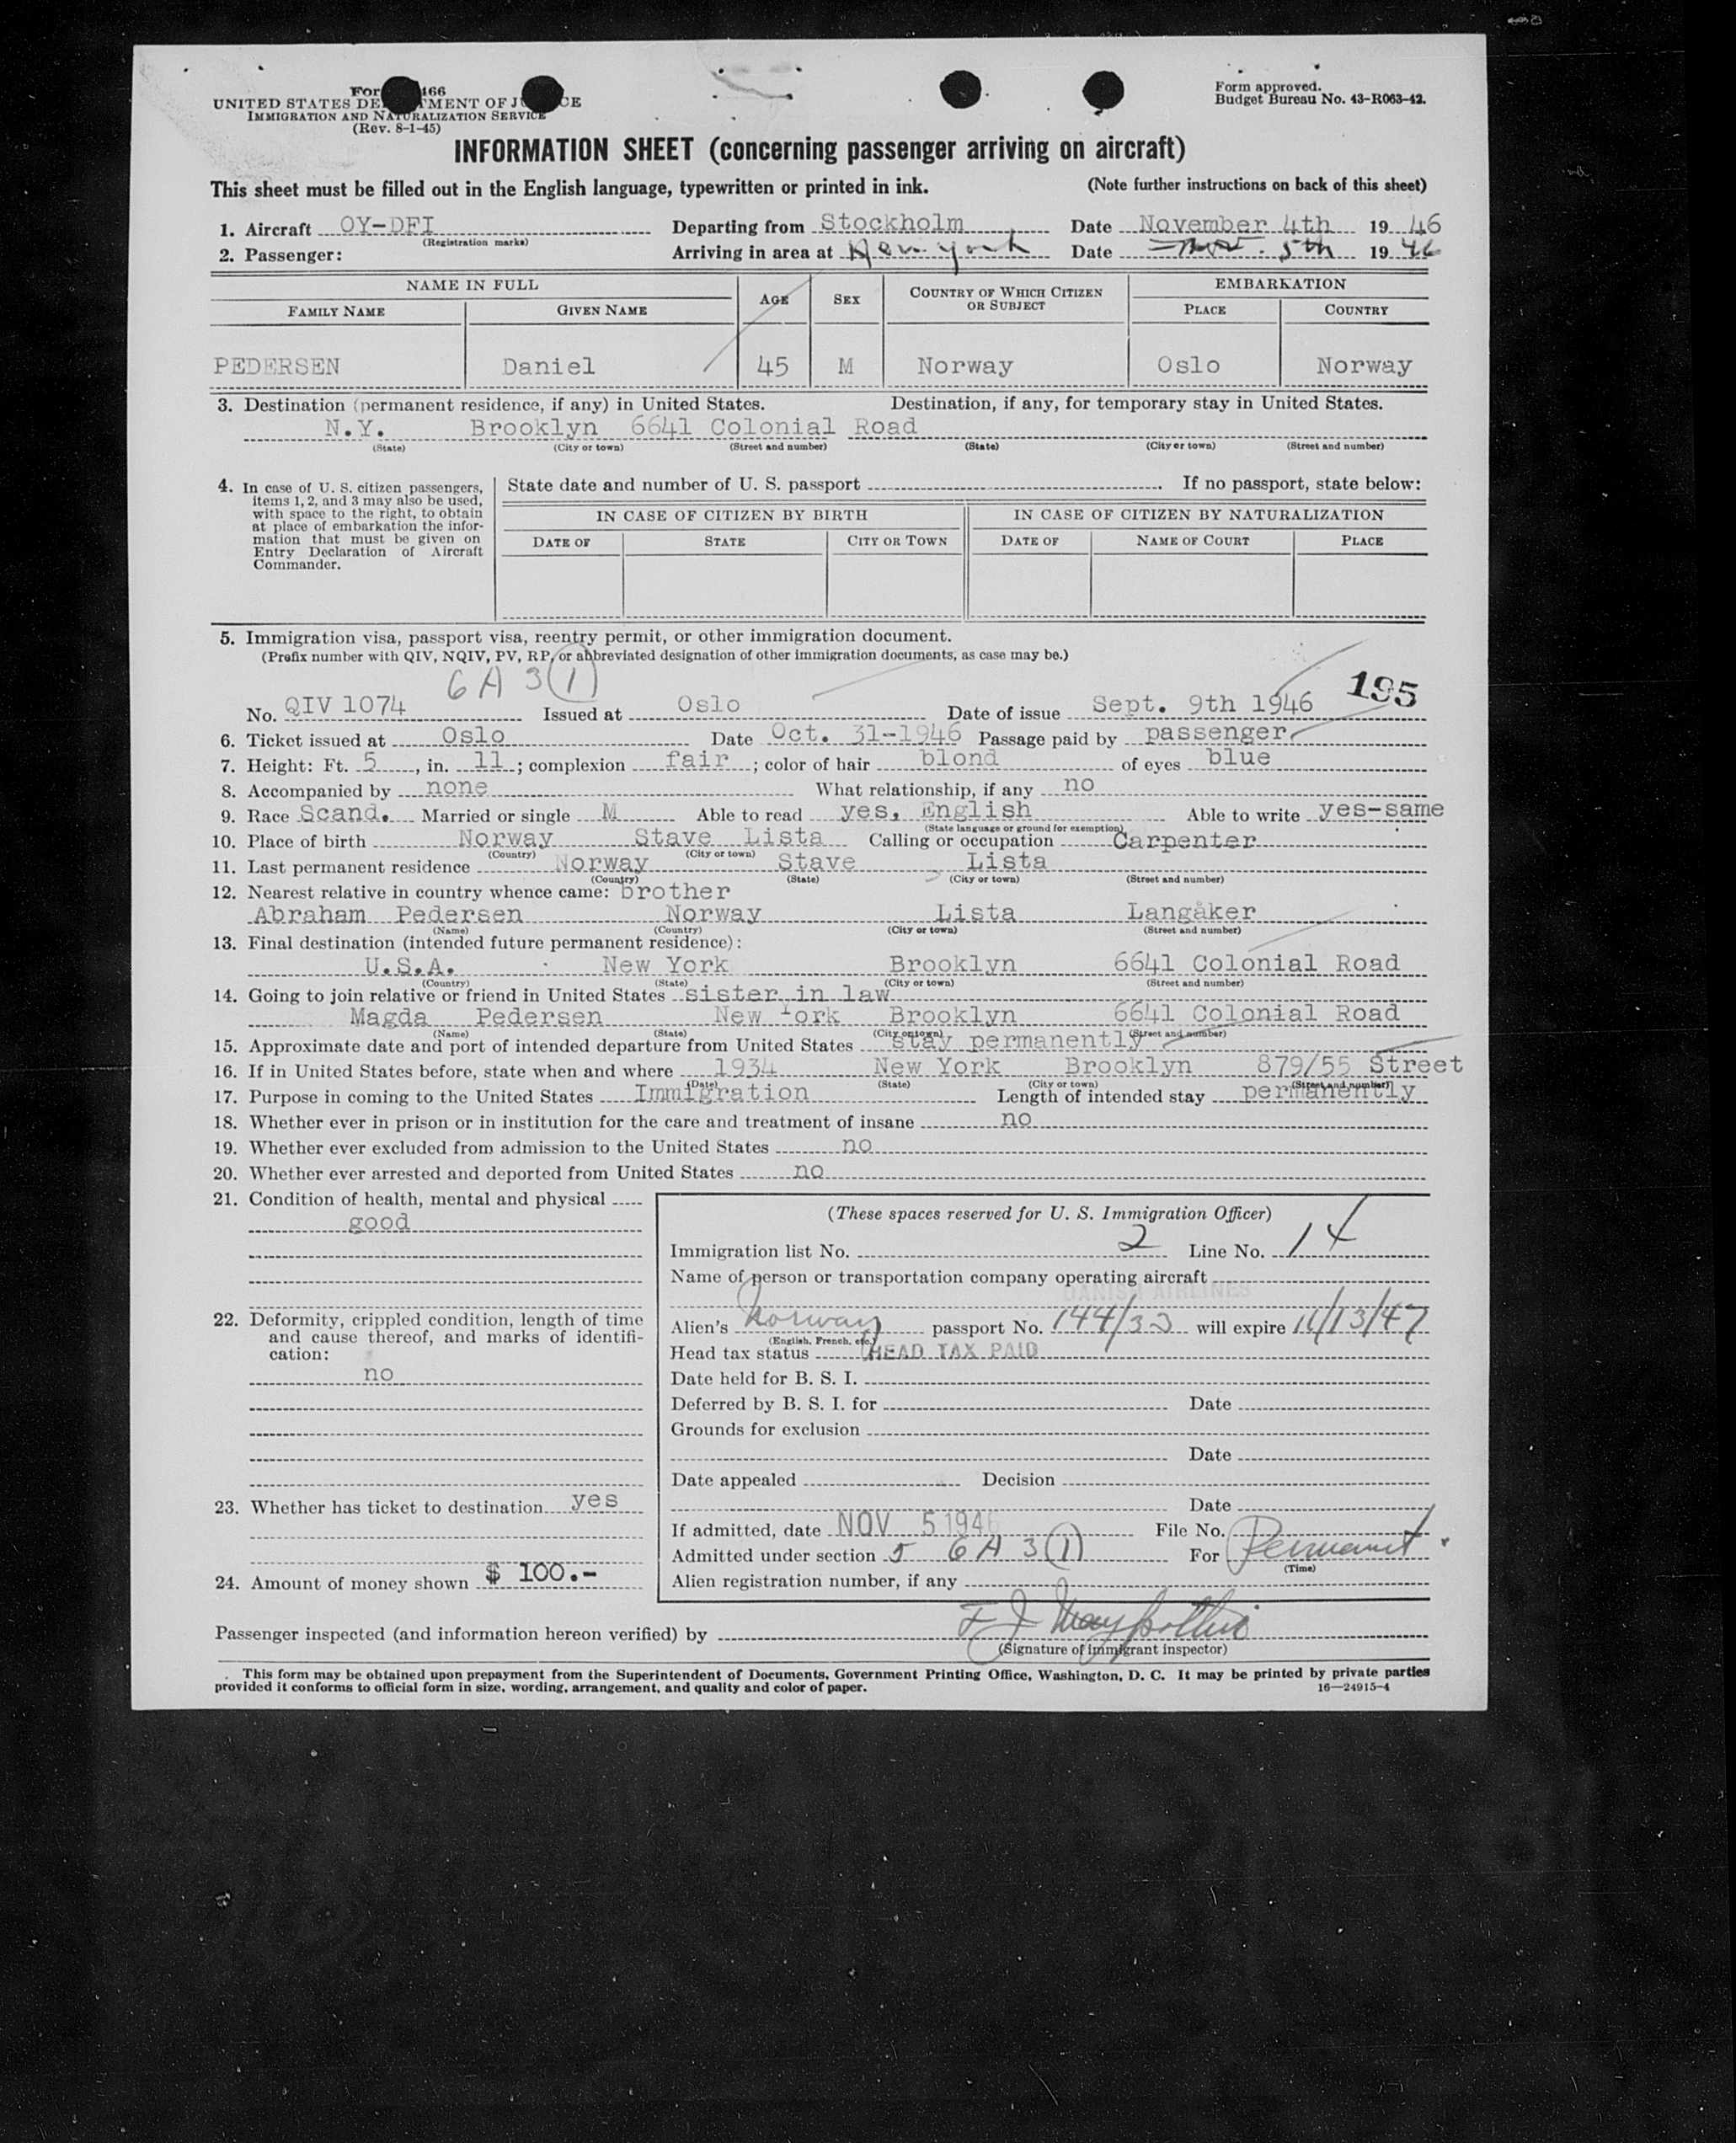 For 466
UNITED STATES DE TMENT OF J CE
IMMIGRATION AND NATURALIZATION SERVICE
(Rev. 8-1-45)
Form approved.
Budget Bureau No. 43-R063-42.
INFORMATION SHEET (concerning passenger arriving on aircraft)
This sheet must be filled out in the English language, typewritten or printed in ink. (Note further instructions on back of this sheet)
1. Aircraft OY-DFI Departing from Stockholm Date November 4th 1946
(Registration marks)
2. Passenger: Arriving in area at New York Date Nov. 5th 1946
NAME IN FULL AGE SEX COUNTRY OF WHICH CITIZEN OR SUBJECT EMBARKATION
FAMILY NAME GIVEN NAME PLACE COUNTRY
PEDERSEN Daniel 45 M Norway Oslo Norway
3. Destination (permanent residence, if any) in United States. Destination, if any, for temporary stay in United States.
N.Y. Brooklyn 6641 Colonial Road
(State) (City or town) (Street and number) (State) (City or town) (Street and number)
4. In case of U. S. citizen passengers, items 1, 2, and 3 may also be used, with space to the right, to obtain at place of embarkation the information that must be given on Entry Declaration of Aircraft Commander.
State date and number of U. S. passport If no passport, state below:
IN CASE OF CITIZEN BY BIRTH IN CASE OF CITIZEN BY NATURALIZATION
DATE OF STATE CITY OR TOWN DATE OF NAME OF COURT PLACE
5. Immigration visa, passport visa, reentry permit, or other immigration document.
(Prefix number with QIV, NQIV, PV, RP, or abbreviated designation of other immigration documents, as case may be.)
6 A 3 (1)
195
No. QIV 1074 Issued at Oslo Date of issue Sept. 9th 1946
6. Ticket issued at Oslo Date Oct. 31-1946 Passage paid by passenger
7. Height: Ft. 5, in. 11; complexion fair; color of hair blond of eyes blue
8. Accompanied by none What relationship, if any no
9. Race Scand. Married or single M Able to read yes, English Able to write yes-same
(State language or ground for exemption)
10. Place of birth Norway Stave Lista Calling or occupation Carpenter
(Country) (City or town)
11. Last permanent residence Norway Stave Lista
(Country) (State) (City or town) (Street and number)
12. Nearest relative in country whence came: brother
Abraham Pedersen Norway Lista Langåker
(Name) (Country) (City or town) (Street and number)
13. Final destination (intended future permanent residence):
U.S.A. New York Brooklyn 6641 Colonial Road
(Country) (State) (City or town) (Street and number)
14. Going to join relative or friend in United States sister in law
Magda Pedersen New York Brooklyn 6641 Colonial Road
(Name) (State) (City or town) (Street and number)
15. Approximate date and port of intended departure from United States stay permanently
16. If in United States before, state when and where 1934 New York Brooklyn 879/55 Street
(Date) (State) (City or town) (Street and number)
17. Purpose in coming to the United States Immigration Length of intended stay permanently
18. Whether ever in prison or in institution for the care and treatment of insane no
19. Whether ever excluded from admission to the United States no
20. Whether ever arrested and deported from United States no
21. Condition of health, mental and physical
good
22. Deformity, crippled condition, length of time and cause thereof, and marks of identification:
no
23. Whether has ticket to destination yes
24. Amount of money shown $ 100.-
(These spaces reserved for U. S. Immigration Officer)
Immigration list No. 2 Line No. 14
Name of person or transportation company operating aircraft
DANISH AIRLINES
Alien's Norway passport No. 144/32 will expire 11/13/47
(English, French, etc.)
Head tax status HEAD TAX PAID
Date held for B. S. I.
Deferred by B. S. I. for Date
Grounds for exclusion
Date
Date appealed Decision
Date
If admitted, date NOV 5 1946 File No.
Admitted under section 5 6 A 3 (1) For Permanent
(Time)
Alien registration number, if any
Passenger inspected (and information hereon verified) by F J
(Signature of immigrant inspector)
This form may be obtained upon prepayment from the Superintendent of Documents, Government Printing Office, Washington, D. C. It may be printed by private parties
provided it conforms to official form in size, wording, arrangement, and quality and color of paper. 16—24915-4